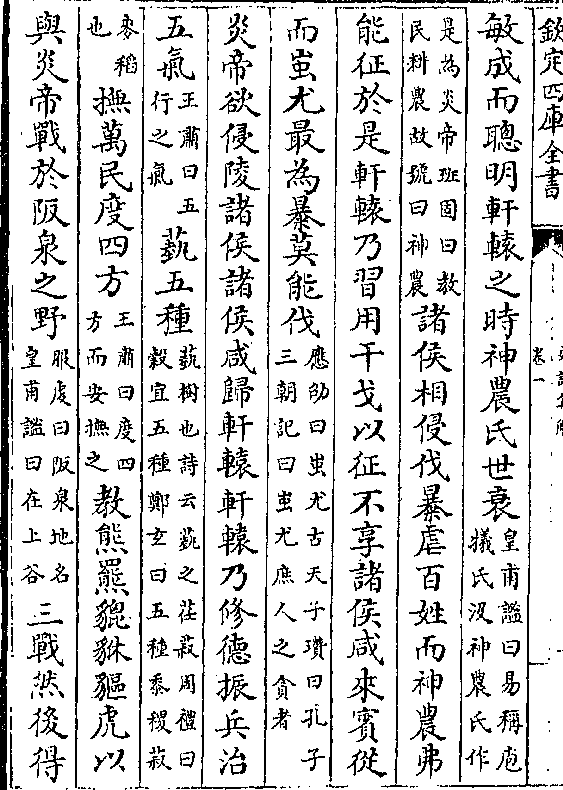 欽定四庫全書
卷一
敏成而聰明軒轅之時神農氏世衰皇甫謐曰易稱庖犧氏沒神農氏作
是為炎帝班固曰教民耕農故號曰神農諸侯相侵伐暴虐百姓而神農弗
能征於是軒轅乃習用干戈以征不享諸侯咸來賓從
而蚩尤最為暴莫能伐應劭曰蚩尤古天子瓚曰孔子三朝記曰蚩尤庶人之貪者
炎帝欲侵陵諸侯諸侯咸歸軒轅軒轅乃修德振兵治
五氣王肅曰五行之氣蓺五種蓺樹也詩云蓺之荏菽周禮曰穀宜五種鄭玄曰五種黍稷菽
麥稻也撫萬民度四方王肅曰度四方而安撫之教熊羆貔貅貙虎以
與炎帝戰於阪泉之野服虔曰阪泉地名皇甫謐曰在上谷三戰然後得